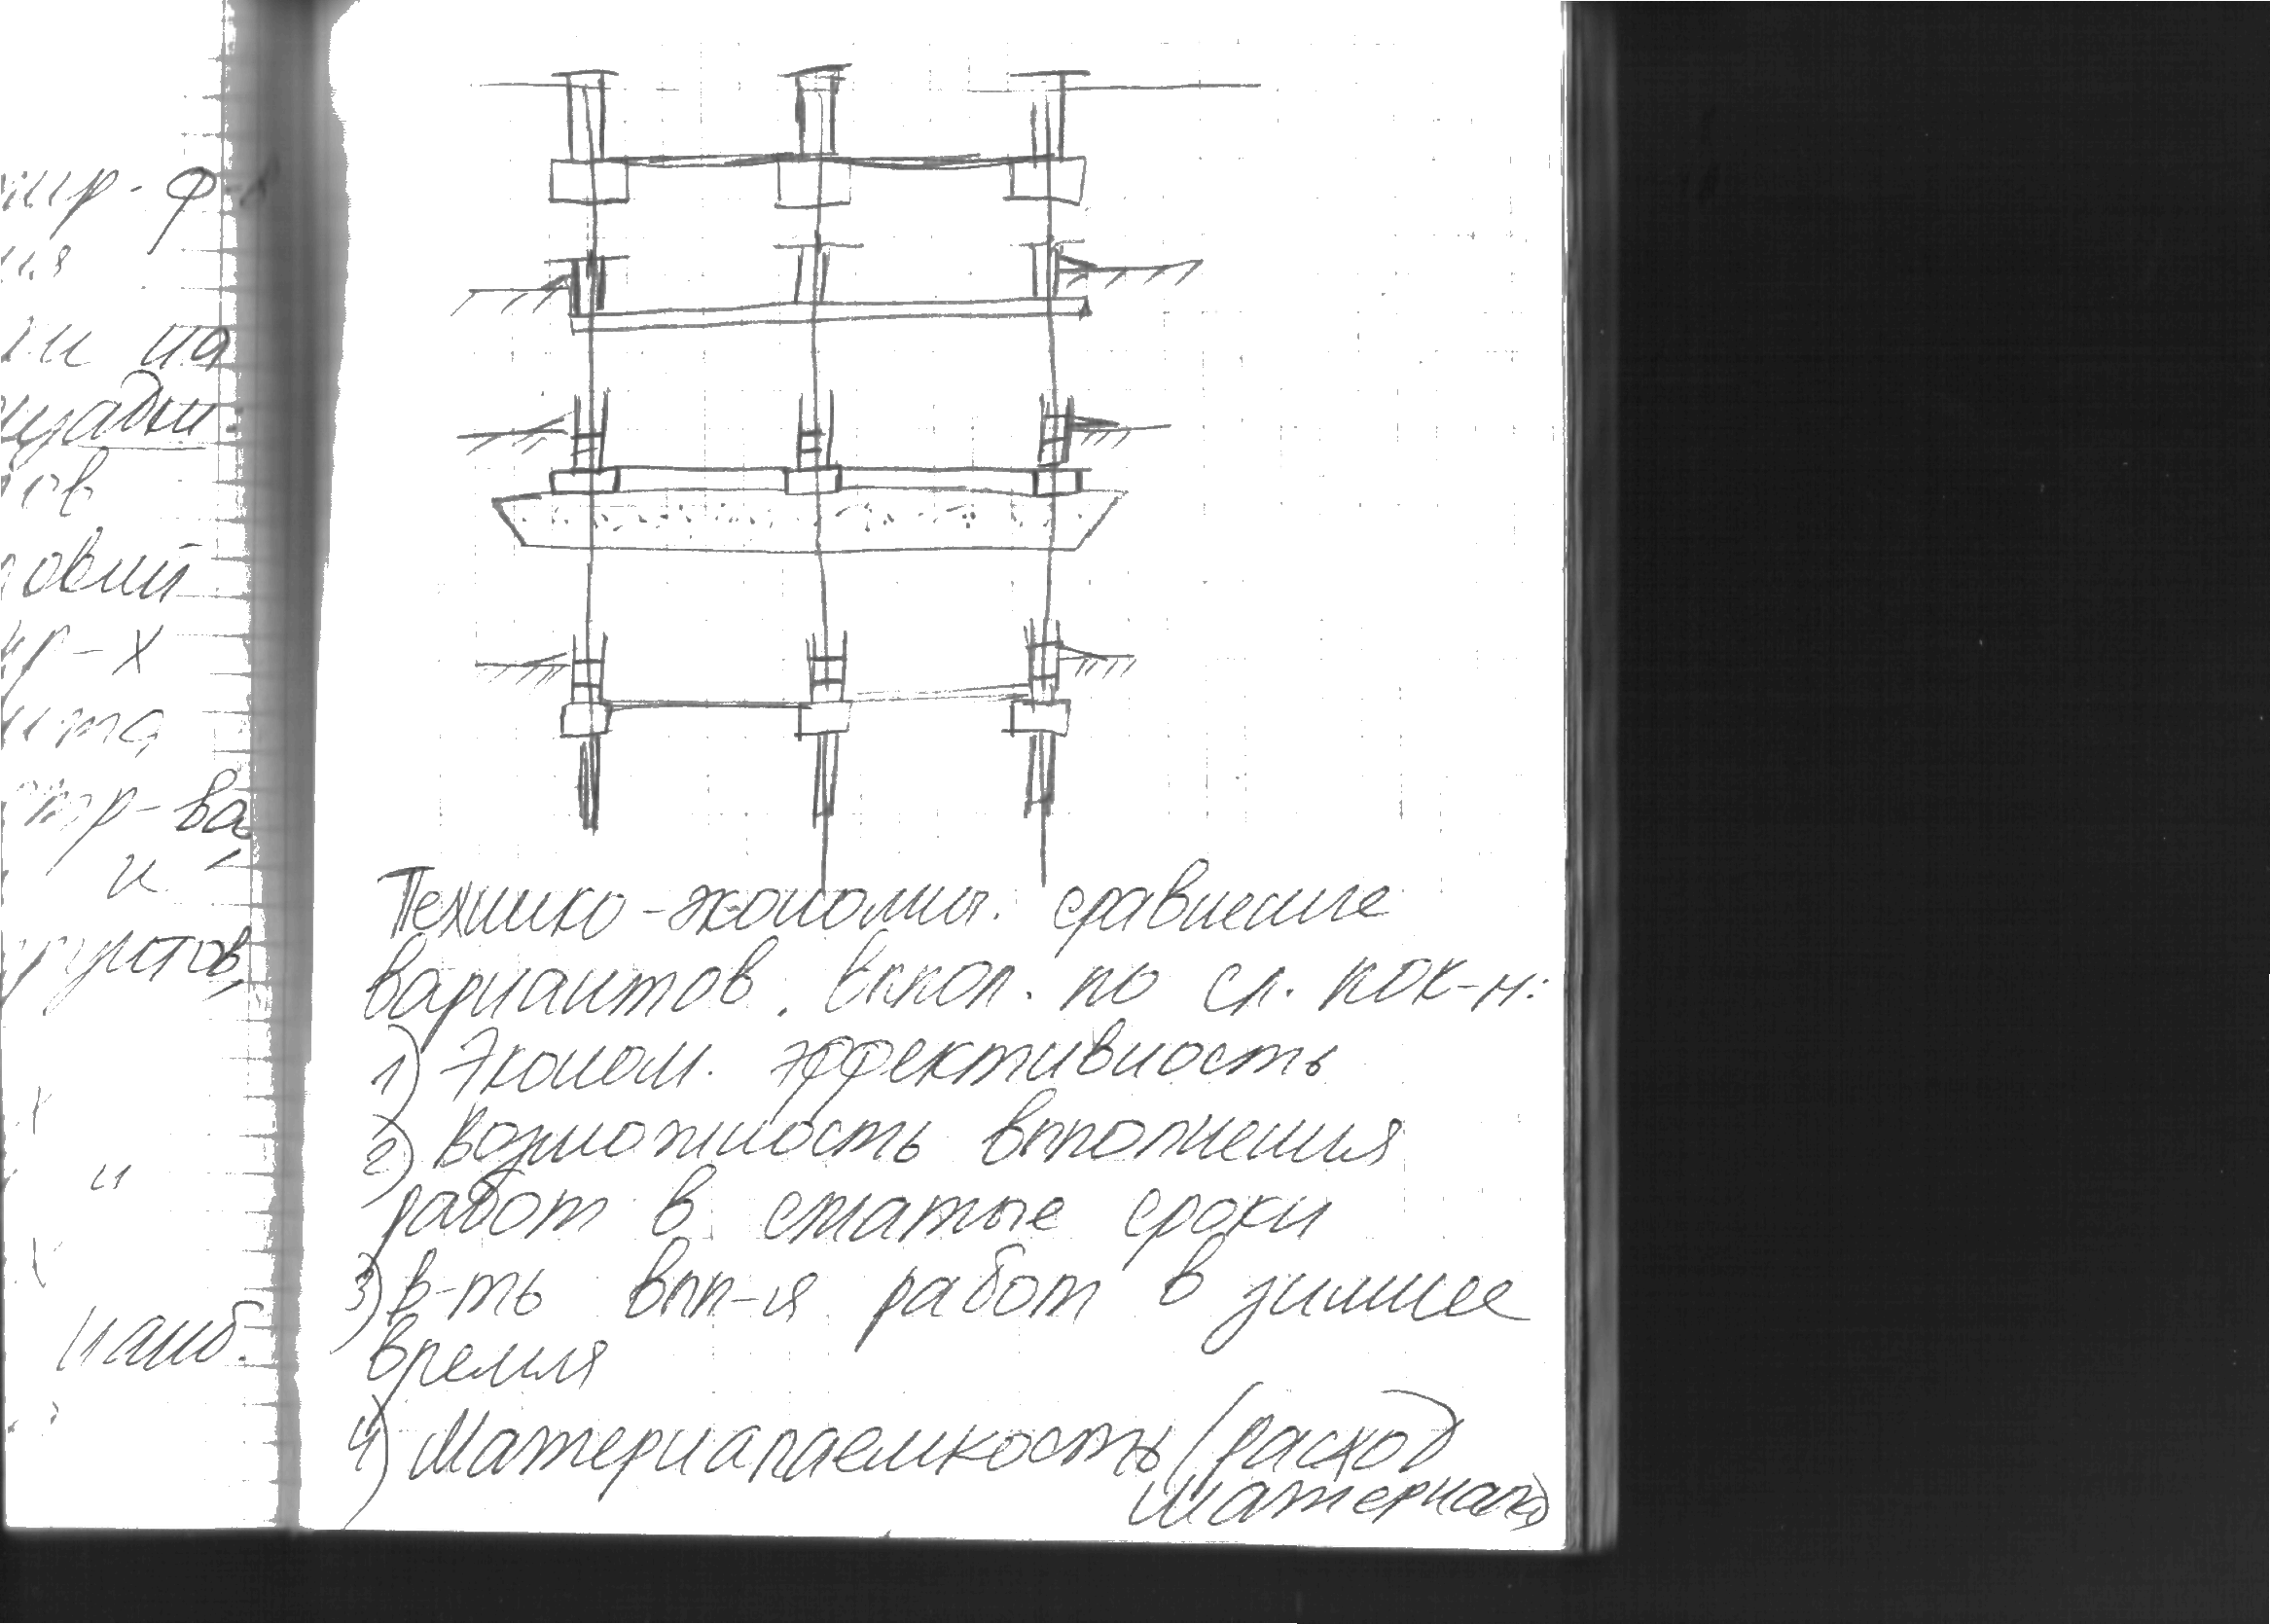 мир-ф-х
ия
ии на
щадки:
тов
овий
кр-х
стр-ва
и
грунтов,
х
и
х
наиб.
Технико-экономич. сравнение
вариантов. выпол. по сл. пок-м:
1) Эконом. эффективность
2) Возможность выполнения
работ в сжатые сроки
3) в-ть вып-я работ в зимнее
время
4) Материалаемкость (расход
материала)